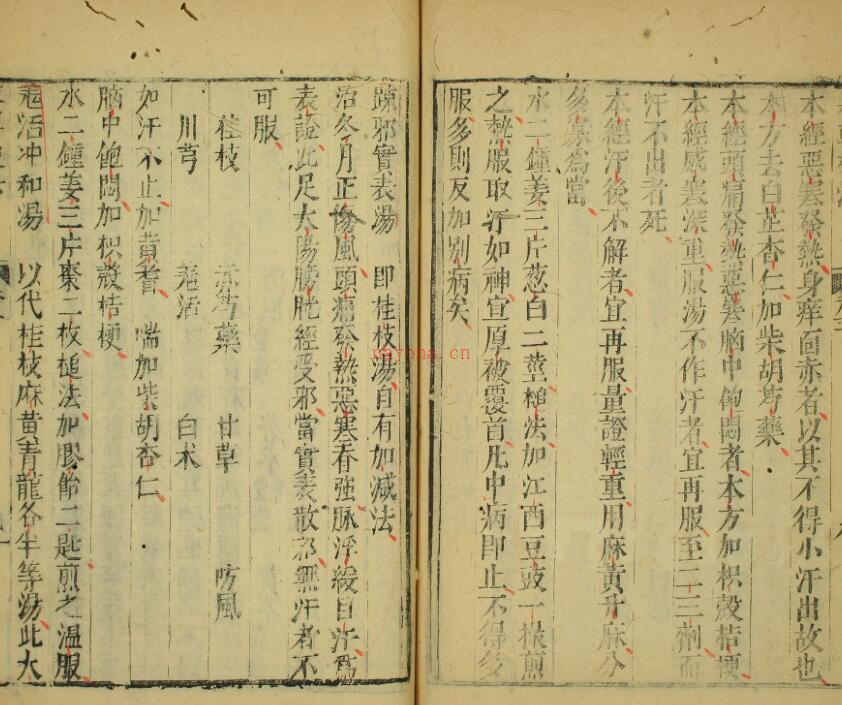 本經惡寒發熱身痒面赤者以其不得小汗出故也
本方去白芷杏仁加柴胡芍藥
本經頭痛發熱惡寒胸中飽悶者本方加枳殼桔梗
本經感寒深重服湯不作汗者宜再服至二三劑而
汗不出者死
本經汗後不解者宜再服量證輕重用麻黃升麻分
多寡為當
水二鍾姜三片葱白二莖槌法加江西豆豉一撮煎
之熱服取汗如神宜厚被覆首凡中病即止不得多
服多則反加別病矣
疎邪實表湯 即桂枝湯自有加減法
治冬月正傷風頭痛發熱惡寒脊強脉浮緩自汗為
表證此足太陽膀胱經受邪當實表散邪無汗者不
可服
桂枝 赤芍藥 甘草 防風
川芎 羗活 白术
如汗不止加黃耆 喘加柴胡杏仁
胸中飽悶加枳殼桔梗
水二鍾姜三片棗二枚槌法加膠飴二匙煎之溫服
羗活冲和湯 以代桂枝麻黃青龍各半等湯此大